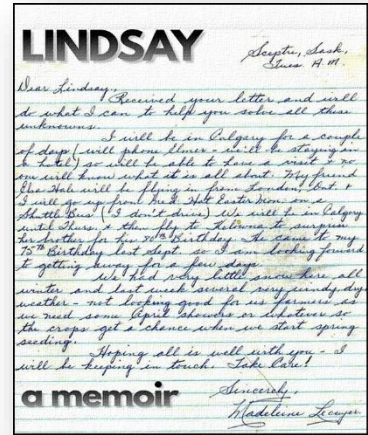 LINDSAY
Sceptre, Sask,
Tues. A.M.
Dear Lindsay,
Received your letter and will
do what I can to help you solve all these
unknowns.
I will be in Calgary for a couple
of days (will phone Elmer - will be staying in
a hotel) so will be able to have a visit & no
one will know what it is all about. My friend
Elsa Hale will be flying in from London, Ont. &
I will go up from Med. Hat Easter Mon. on a
Shuttle Bus (I don't drive) We will be in Calgary
until Thurs. & then fly to Kelowna to surprise
her brother for his 90th Birthday - He came to my
75th Birthday last Sept. so I am looking forward
to getting away for a few days.
We had very little snow here all
winter and last week several very windy dry
weather - not looking good for us farmers as
we need some April showers or whatever so
the crops get a chance when we start spring
seeding.
Hoping all is well with you - I
will be keeping in touch. Take Care!
a memoir
Sincerely,
Madeleine Lecuyer